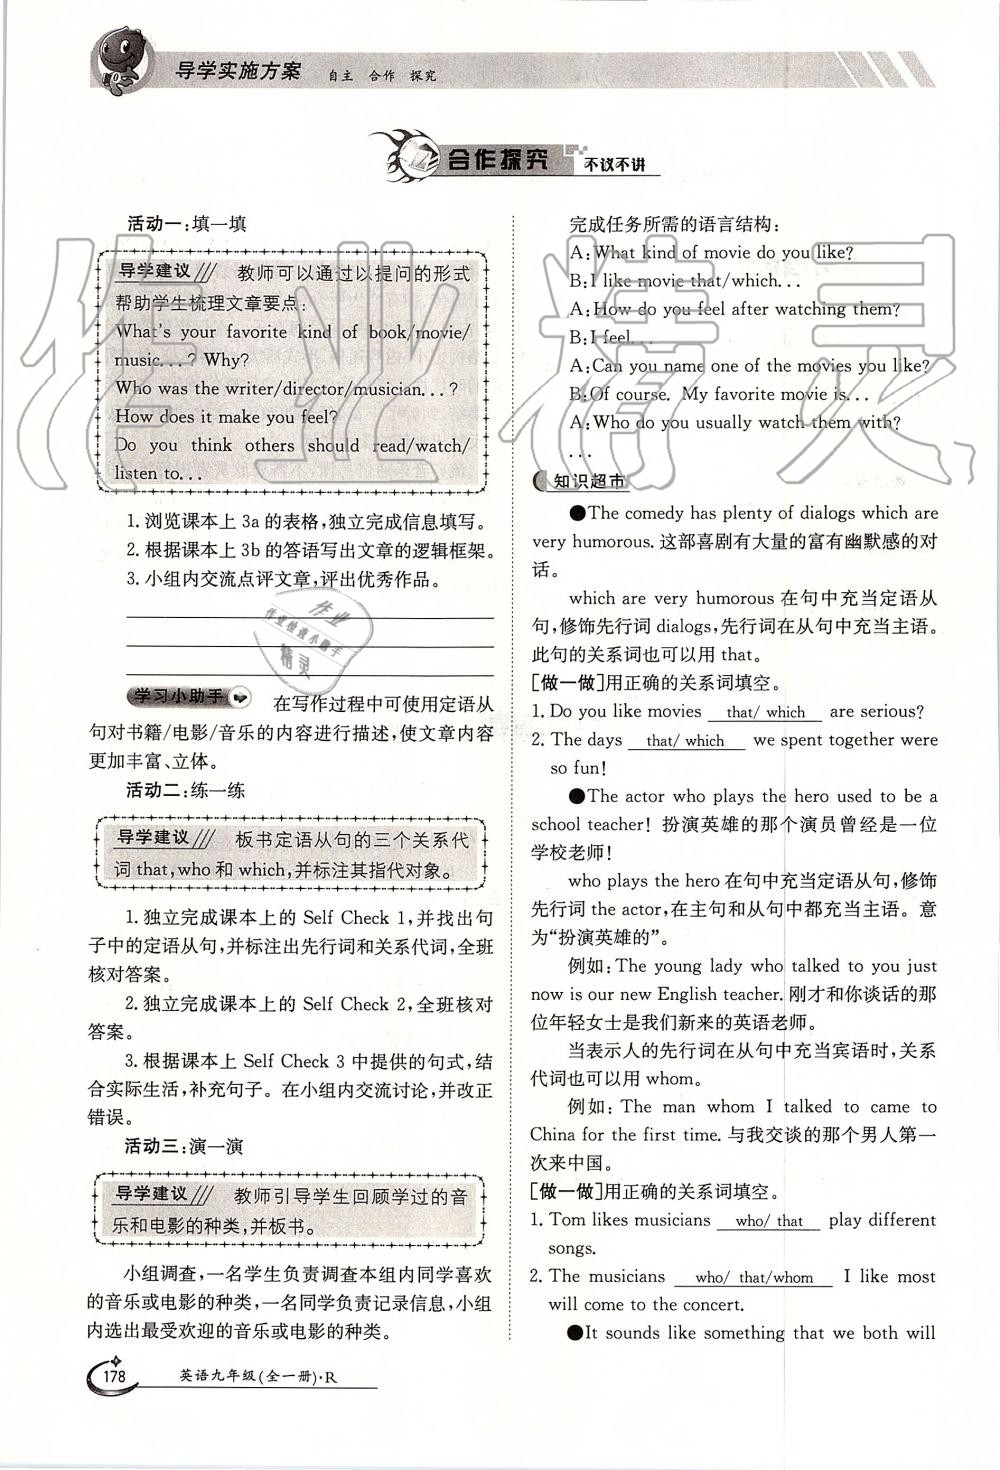 导学实施方案 自主 合作 探究
合作探究 不议不讲
活动一:填一填
导学建议/// 教师可以通过以提问的形式
帮助学生梳理文章要点:
What's your favorite kind of book/movie/
music...? Why?
Who was the writer/director/musician...?
How does it make you feel?
Do you think others should read/watch/
listen to...
1. 浏览课本上 3a 的表格,独立完成信息填写。
2. 根据课本上 3b 的答语写出文章的逻辑框架。
3. 小组内交流点评文章,评出优秀作品。
学习小助手 在写作过程中可使用定语从
句对书籍/电影/音乐的内容进行描述,使文章内容
更加丰富、立体。
活动二:练一练
导学建议/// 板书定语从句的三个关系代
词 that,who 和 which,并标注其指代对象。
1. 独立完成课本上的 Self Check 1,并找出句
子中的定语从句,并标注出先行词和关系代词,全班
核对答案。
2. 独立完成课本上的 Self Check 2,全班核对
答案。
3. 根据课本上 Self Check 3 中提供的句式,结
合实际生活,补充句子。在小组内交流讨论,并改正
错误。
活动三:演一演
导学建议/// 教师引导学生回顾学过的音
乐和电影的种类,并板书。
小组调查,一名学生负责调查本组内同学喜欢
的音乐或电影的种类,一名同学负责记录信息,小组
内选出最受欢迎的音乐或电影的种类。
完成任务所需的语言结构:
A:What kind of movie do you like?
B:I like movie that/which...
A:How do you feel after watching them?
B:I feel...
A:Can you name one of the movies you like?
B:Of course. My favorite movie is...
A:Who do you usually watch them with?
...
知识超市
●The comedy has plenty of dialogs which are
very humorous. 这部喜剧有大量的富有幽默感的对
话。
which are very humorous 在句中充当定语从
句,修饰先行词 dialogs,先行词在从句中充当主语。
此句的关系词也可以用 that。
[做一做]用正确的关系词填空。
1. Do you like movies that/ which are serious?
2. The days that/ which we spent together were
so fun!
●The actor who plays the hero used to be a
school teacher! 扮演英雄的那个演员曾经是一位
学校老师!
who plays the hero 在句中充当定语从句,修饰
先行词 the actor,在主句和从句中都充当主语。意
为“扮演英雄的”。
例如:The young lady who talked to you just
now is our new English teacher. 刚才和你谈话的那
位年轻女士是我们新来的英语老师。
当表示人的先行词在从句中充当宾语时,关系
代词也可以用 whom。
例如:The man whom I talked to came to
China for the first time. 与我交谈的那个男人第一
次来中国。
[做一做]用正确的关系词填空。
1. Tom likes musicians who/ that play different
songs.
2. The musicians who/ that/whom I like most
will come to the concert.
●It sounds like something that we both will
178 英语九年级(全一册)·R
作业精灵
作业
作业检查小助手
精灵